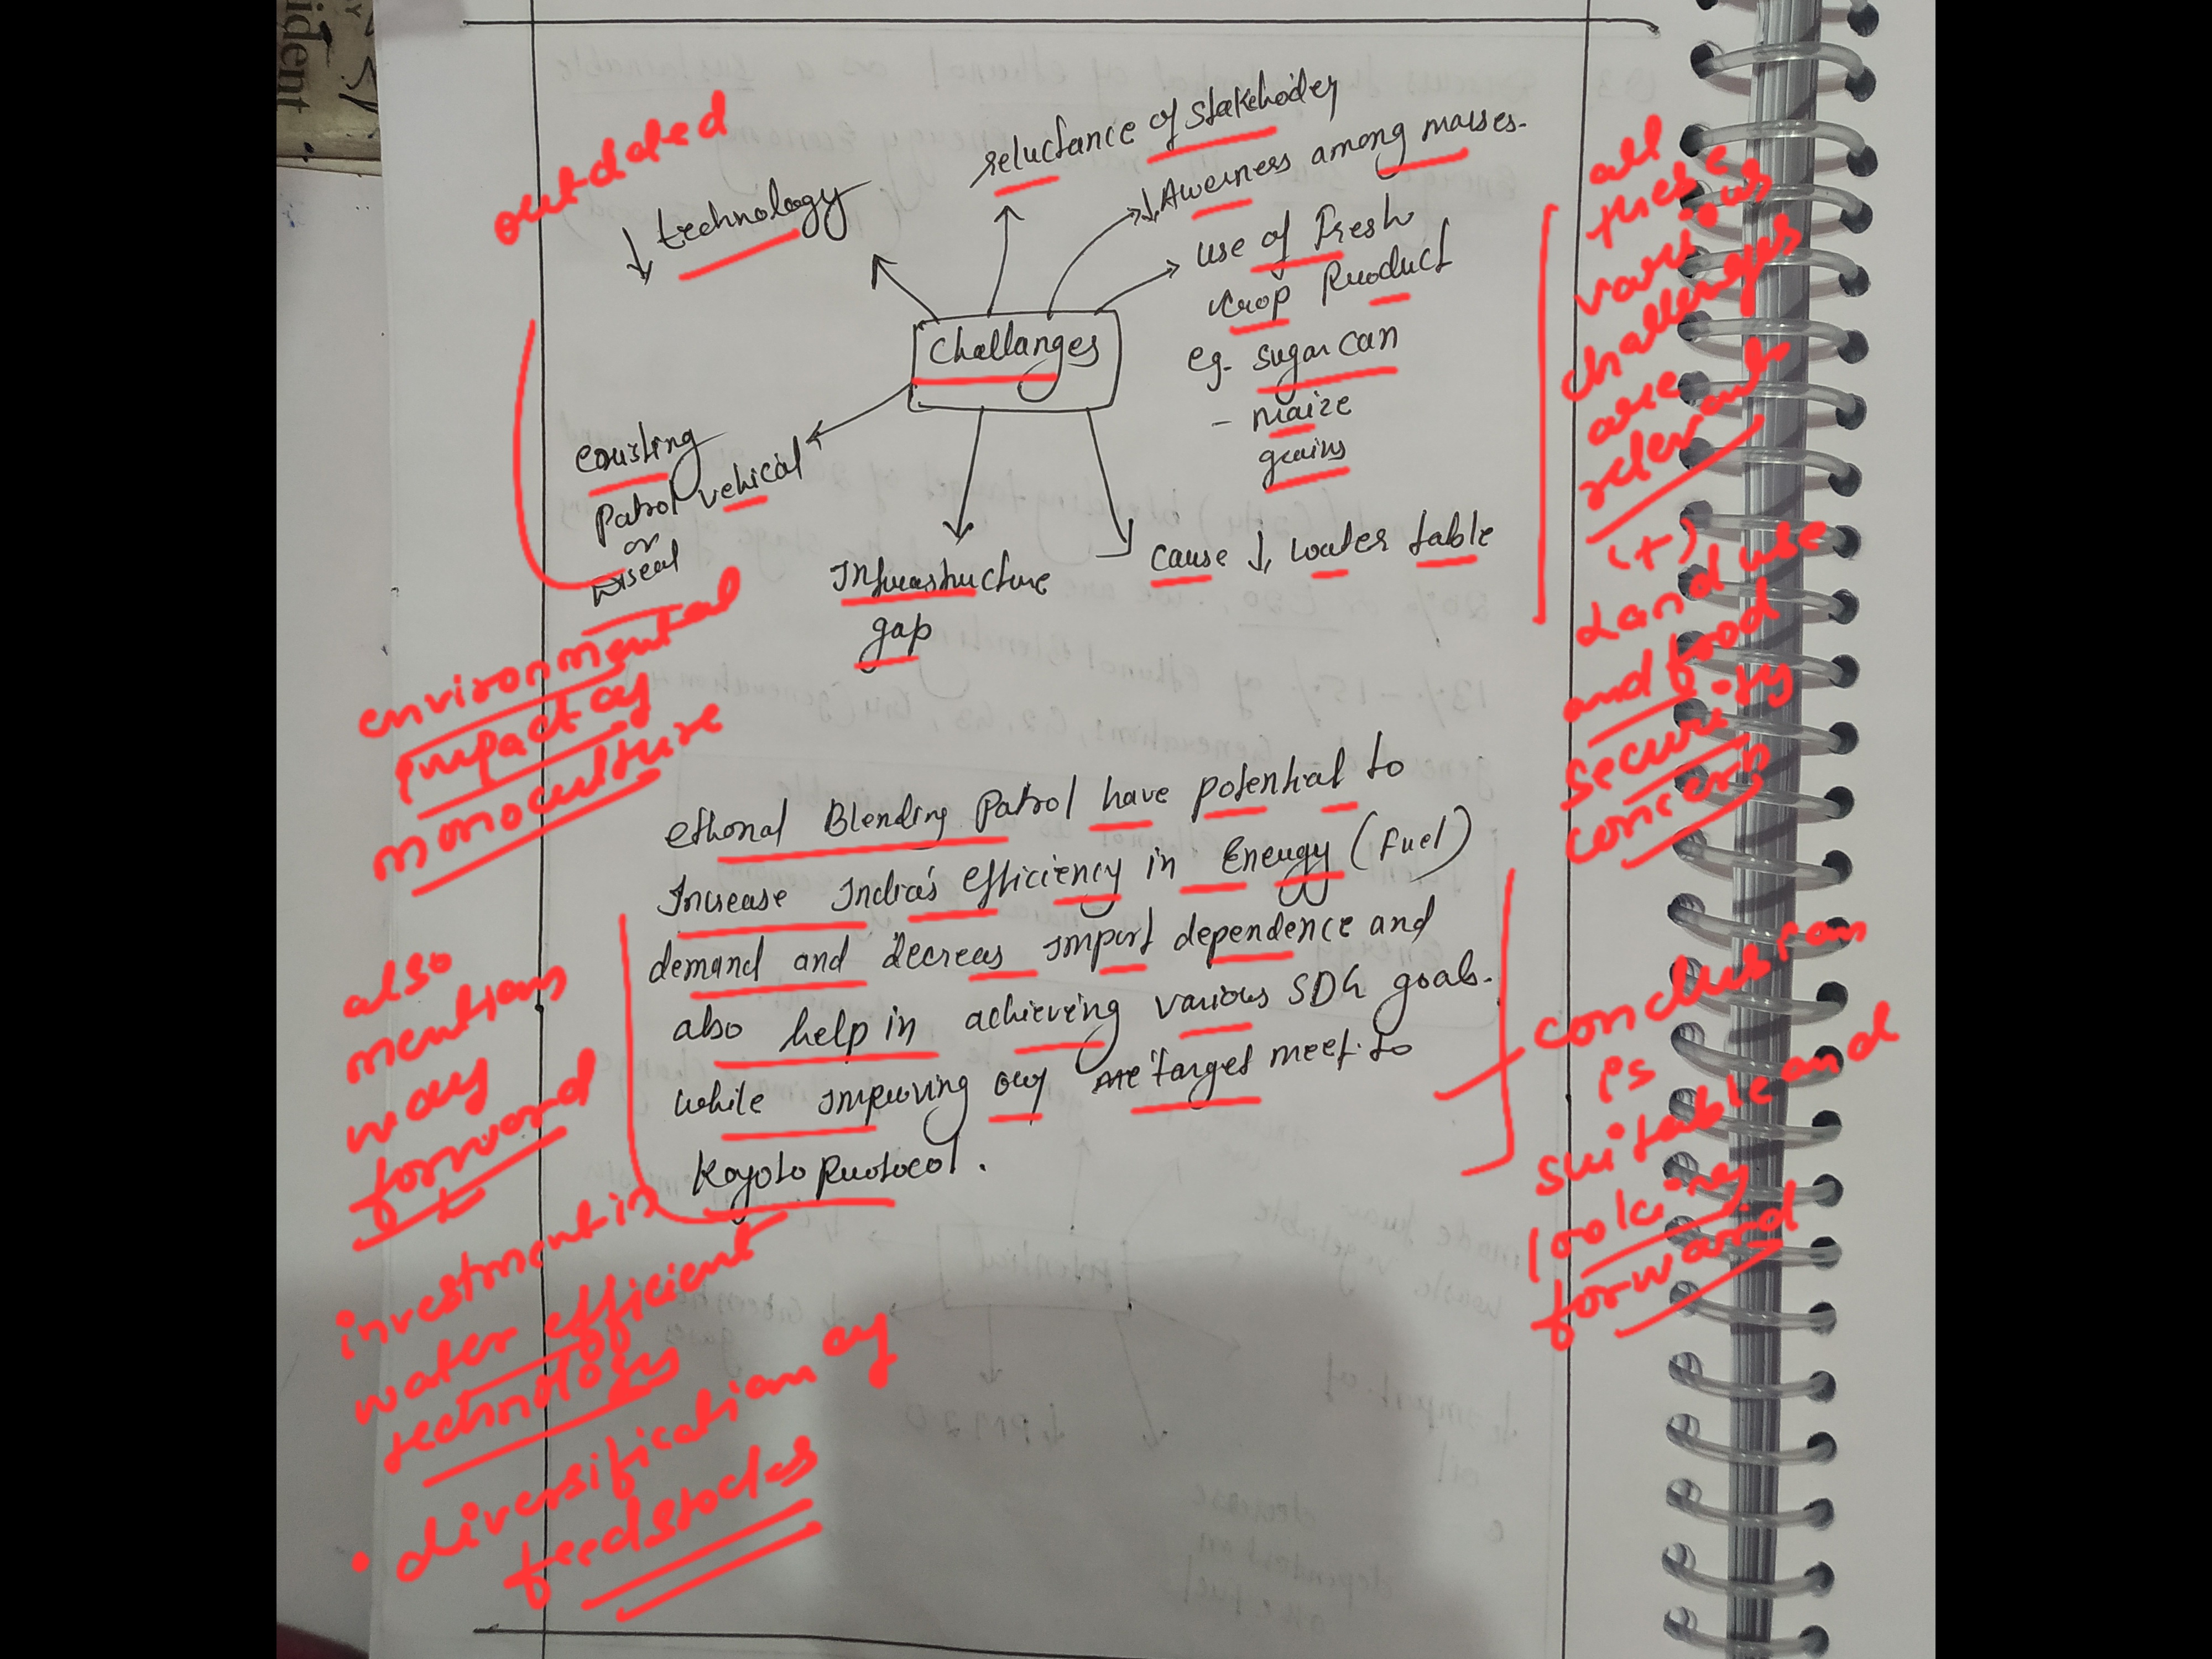 ident
outdated
↓ technology
reluctance of stakehoder
↓ Awerness among masses.
use of Fresh
crop Product
eg. sugar can
- maize
grains
Challanges
exisiting
Patrol vehical
or
Diseal
Infrastructure
gap
cause ↓ water table
all
these
various
challenges
are
relevant
(+)
Land use
and food
security
concern
environmental
impact of
monoculture
ethonal Blending Patrol have potential to
Increase India's efficiency in Energy (Fuel)
demand and decreas import dependence and
also help in achieving various SDG goals.
while improving our target meet to
Koyoto Protocol.
also
mention
way
forward
investment in
water efficient
technology
• diversification of
feedstocks
conclusion
is
suitable and
looking
forward